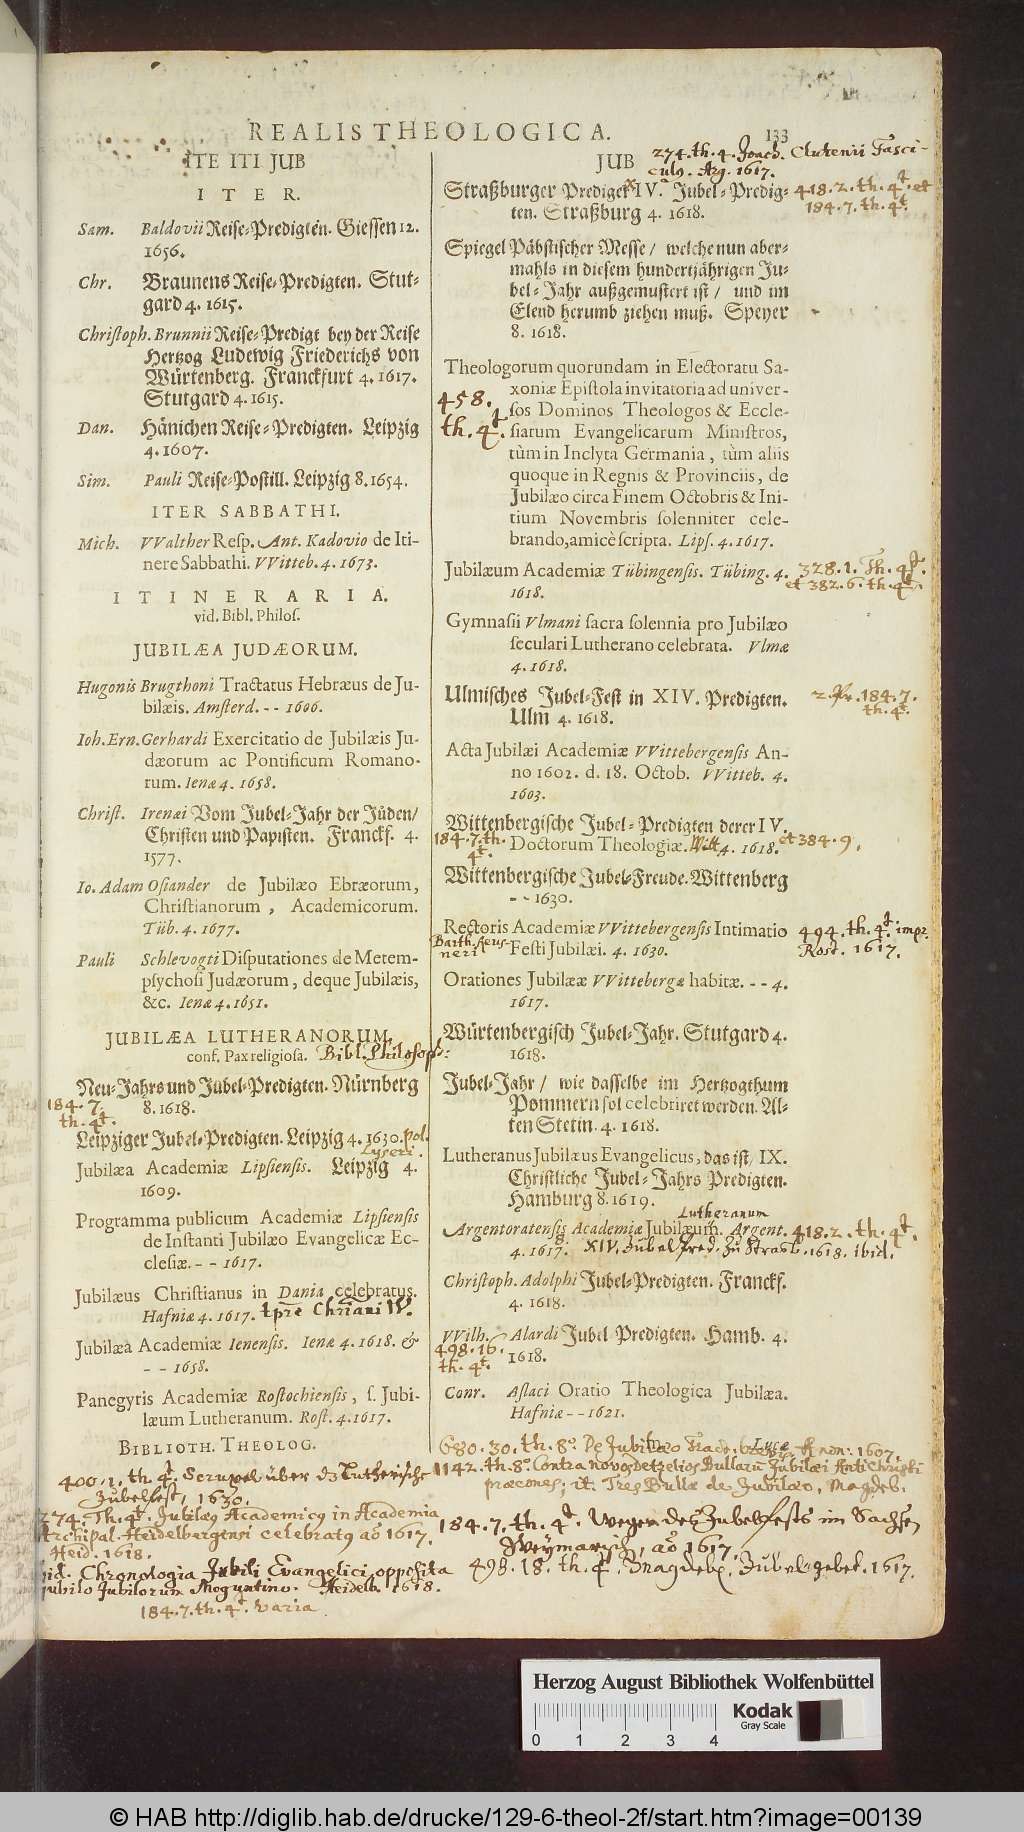 REALIS THEOLOGICA.
133
ITE ITI JUB
ITER.
Sam. Baldovii Reise-Predigten. Giessen 12.
1656.
Chr. Braunens Reise-Predigten. Stut-
gard 4. 1615.
Christoph. Brunnii Reise-Predigt bey der Reise
Hertzog Ludewig Friederichs von
Würtenberg. Franckfurt 4. 1617.
Stutgard 4. 1615.
Dan. Hänichen Reise-Predigten. Leipzig
4. 1607.
Sim. Pauli Reise-Postill. Leipzig 8. 1654.
ITER SABBATHI.
Mich. VValther Resp. Ant. Kadovio de Iti-
nere Sabbathi. VVitteb. 4. 1673.
ITINERARIA.
vid. Bibl. Philos.
JUBILÆA JUDÆORUM.
Hugonis Brugthoni Tractatus Hebræus de Ju-
bilæis. Amsterd. - - 1606.
Ioh. Ern. Gerhardi Exercitatio de Jubilæis Ju-
dæorum ac Pontificum Romano-
rum. Ienæ 4. 1658.
Christ. Irenæi Vom Jubel-Jahr der Jüden/
Christen und Papisten. Francks. 4.
1577.
Io. Adam Osiander de Jubilæo Ebræorum,
Christianorum, Academicorum.
Tüb. 4. 1677.
Pauli Schlevogti Disputationes de Metem-
psychosi Judæorum, deque Jubilæis,
&c. Ienæ 4. 1651.
JUBILÆA LUTHERANORUM.
conf. Pax religiosa. Bibl. Philosoph:
Neu-Jahrs und Jubel-Predigten. Nürnberg
8. 1618.
184. 7.
th. 4t.
Leipziger Jubel-Predigten. Leipzig 4. 1630. pol.
Lyseri.
Jubilæa Academiæ Lipsiensis. Leipzig 4.
1609.
Programma publicum Academiæ Lipsiensis
de Instanti Jubilæo Evangelicæ Ec-
clesiæ. - - 1617.
Jubilæus Christianus in Dania celebratus.
Hafniæ 4. 1617. tpre Christiani IV.
Jubilæa Academiæ Ienensis. Ienæ 4. 1618. &
- - 1658.
Panegyris Academiæ Rostochiensis, s. Jubi-
læum Lutheranum. Rost. 4. 1617.
BIBLIOTH. THEOLOG.
400. 1. th. 4t. Scrupel über dz Lutherische
Jubelfest, 1630.
274. Th. 4t. Jubilæus Academicus in Academia
Archipal. Heidelbergensi celebratus ao 1617.
Heid. 1618.
id. Chronologia Jubili Evangelici opposita
jubilo Jubilorum Moguntino. Heidelb. 1618.
184. 7. th. 4t. varia
JUB
274. th. 4. Joach. Clutenii Fasci-
culus. Arg. 1617.
Straßburger Prediger XIV. Jubel-Predig-
ten. Straßburg 4. 1618.
418. 2. th. 4t. et
184. 7. th. 4t.
Spiegel Päbstischer Messe/ welche nun aber-
mahls in diesem hundertjährigen Ju-
bel-Jahr außgemustert ist/ und im
Elend herumb ziehen muß. Speyer
8. 1618.
Theologorum quorundam in Electoratu Sa-
xoniæ Epistola invitatoria ad univer-
sos Dominos Theologos & Eccle-
siarum Evangelicarum Ministros,
tùm in Inclyta Germania, tùm aliis
quoque in Regnis & Provinciis, de
Jubilæo circa Finem Octobris & Ini-
tium Novembris solenniter cele-
brando, amicè scripta. Lips. 4. 1617.
458.
th. 4t.
Jubilæum Academiæ Tübingensis. Tübing. 4.
1618.
328. 1. Th. 4t.
et 382. 6. th. 4t.
Gymnasii Vlmani sacra solennia pro Jubilæo
seculari Lutherano celebrata. Vlmæ
4. 1618.
Ulmisches Jubel-Fest in XIV. Predigten.
Ulm 4. 1618.
184. 7.
th. 4t.
Acta Jubilæi Academiæ VVittebergensis An-
no 1602. d. 18. Octob. VVitteb. 4.
1603.
Wittenbergische Jubel-Predigten derer IV.
Doctorum Theologiæ. Witt. 4. 1618. et 384. 9.
184. 7. th.
4t.
Wittenbergische Jubel-Freude. Wittenberg
- - 1630.
Rectoris Academiæ VVittebergensis Intimatio
Festi Jubilæi. 4. 1630.
494. th. 4t. impr.
Rost. 1617.
Orationes Jubilææ VVittebergæ habitæ. - - 4.
1617.
Würtenbergisch Jubel-Jahr. Stutgard 4.
1618.
Jubel-Jahr/ wie dasselbe im Hertzogthum
Pommern sol celebriret werden. Al-
ten Stetin. 4. 1618.
Lutheranus Jubilæus Evangelicus, das ist/ IX.
Christliche Jubel-Jahrs Predigten.
Hamburg 8. 1619.
Lutheranum
Argentoratensis Academiæ Jubilæum. Argent.
4. 1617. XIV. Jubel Pred. zu Strasb. 1618. ibid.
418. 2. th. 4t.
Christoph. Adolphi Jubel-Predigten. Francks.
4. 1618.
VVilh. Alardi Jubel-Predigten. Hamb. 4.
1618.
498. 16.
th. 4t.
Conr. Aslaci Oratio Theologica Jubilæa.
Hafniæ - - 1621.
680. 30. th. 8o. De Jubilæo 1607.
1142. th. 8o. Contra novos detzelios Bullarum Jubilæi AntiChristi
præcones; it. Tres Bullæ de Jubilæo, Magdeb.
184. 7. th. 4t. Wegen des Jubelfests im Sachsen
Weymarisch, ao 1617.
498. 18. th. 4t. Magdeb. Jubelgebet. 1617.
Herzog August Bibliothek Wolfenbüttel
Kodak
Gray Scale
0 1 2 3 4
© HAB http://diglib.hab.de/drucke/129-6-theol-2f/start.htm?image=00139